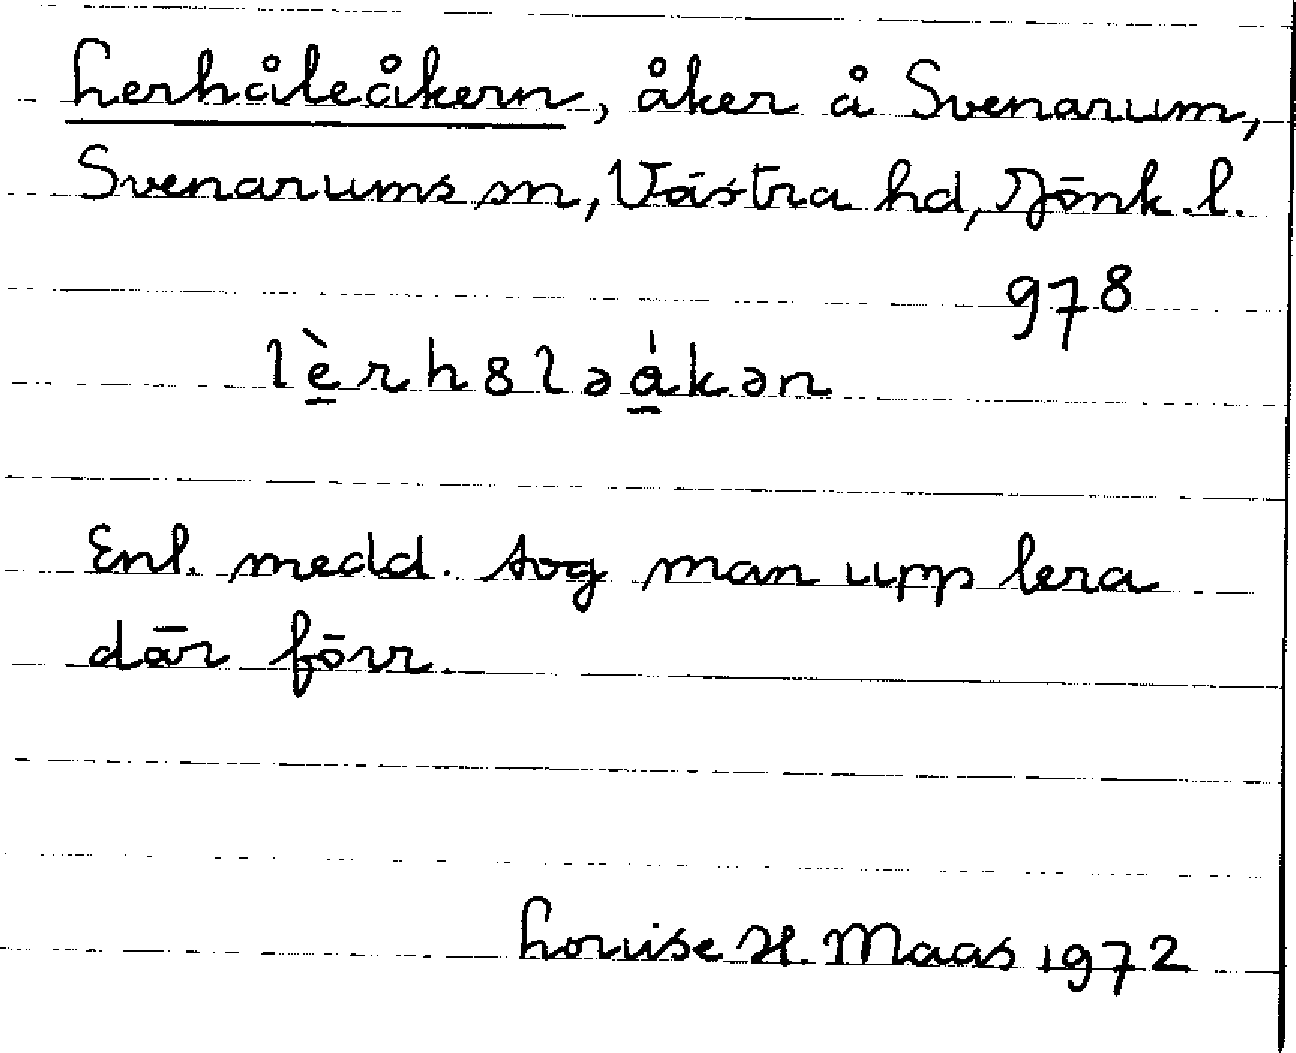 Lerhåleåkern, åker å Svenarum,
Svenarums sn, Västra hd, Jönk. l.
978
lè̱rh8ləá̱kən
Enl. medd. tog man upp lera
där förr.
Louise H. Maas 1972